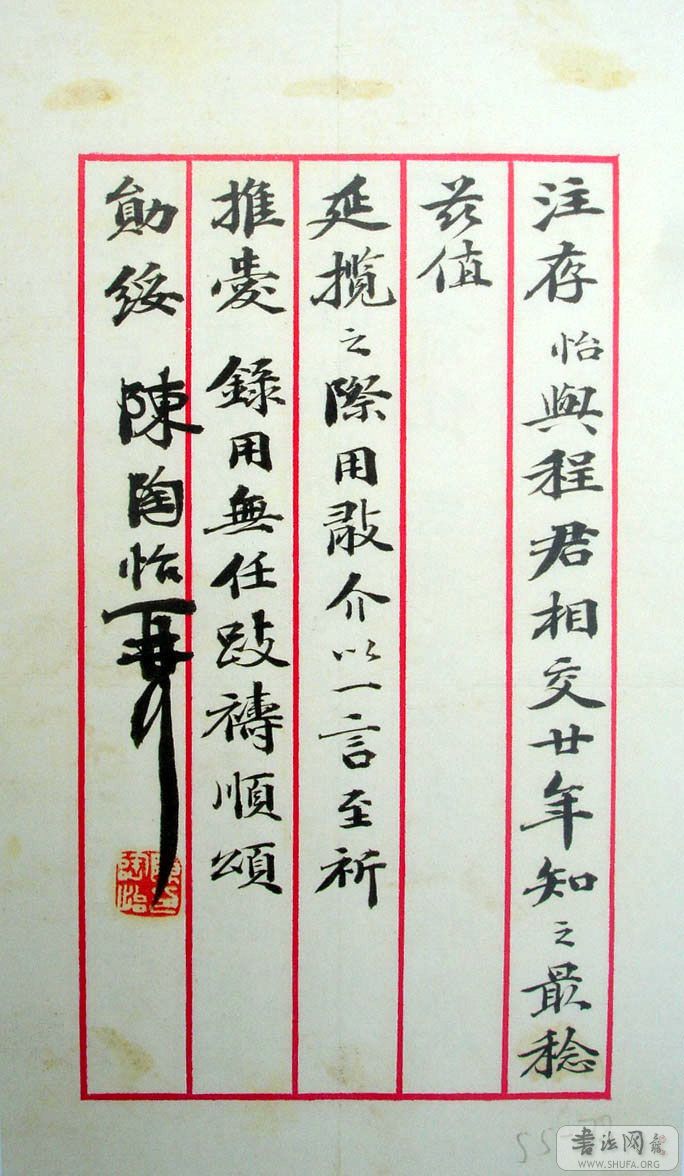 注存怡與程君相交廿年知之最稔
茲值
延攬之際用敢介以一言至祈
推愛錄用無任跂禱順頌
勛綏 陳陶怡
書法网
WWW.SHUFA.ORG